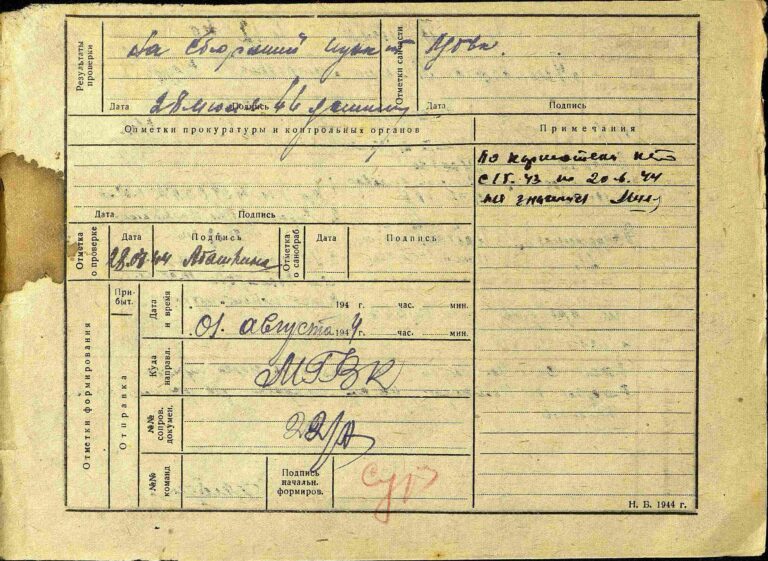 Результаты проверки
На сборный пункт
Отметки санчасти
Дата 28 июля 44 Подпись
Дата Подпись
Отметки прокуратуры и контрольных органов
Примечания
По картотеки нет
с 1.V.43 по 20.6.44
не значится
Дата Подпись
Отметка о проверке
Дата Подпись
28.07.44
Отметка о санобраб
Дата Подпись
Отметки формирования
Прибыт.
Отправка
Дата и время
194 г. час. мин.
01 августа 1944 г. час. мин.
Куда направл.
МГВК
№№ сопров. докумен.
22/А
№№ команд
Подпись начальн. формиров.
Н. Б. 1944 г.